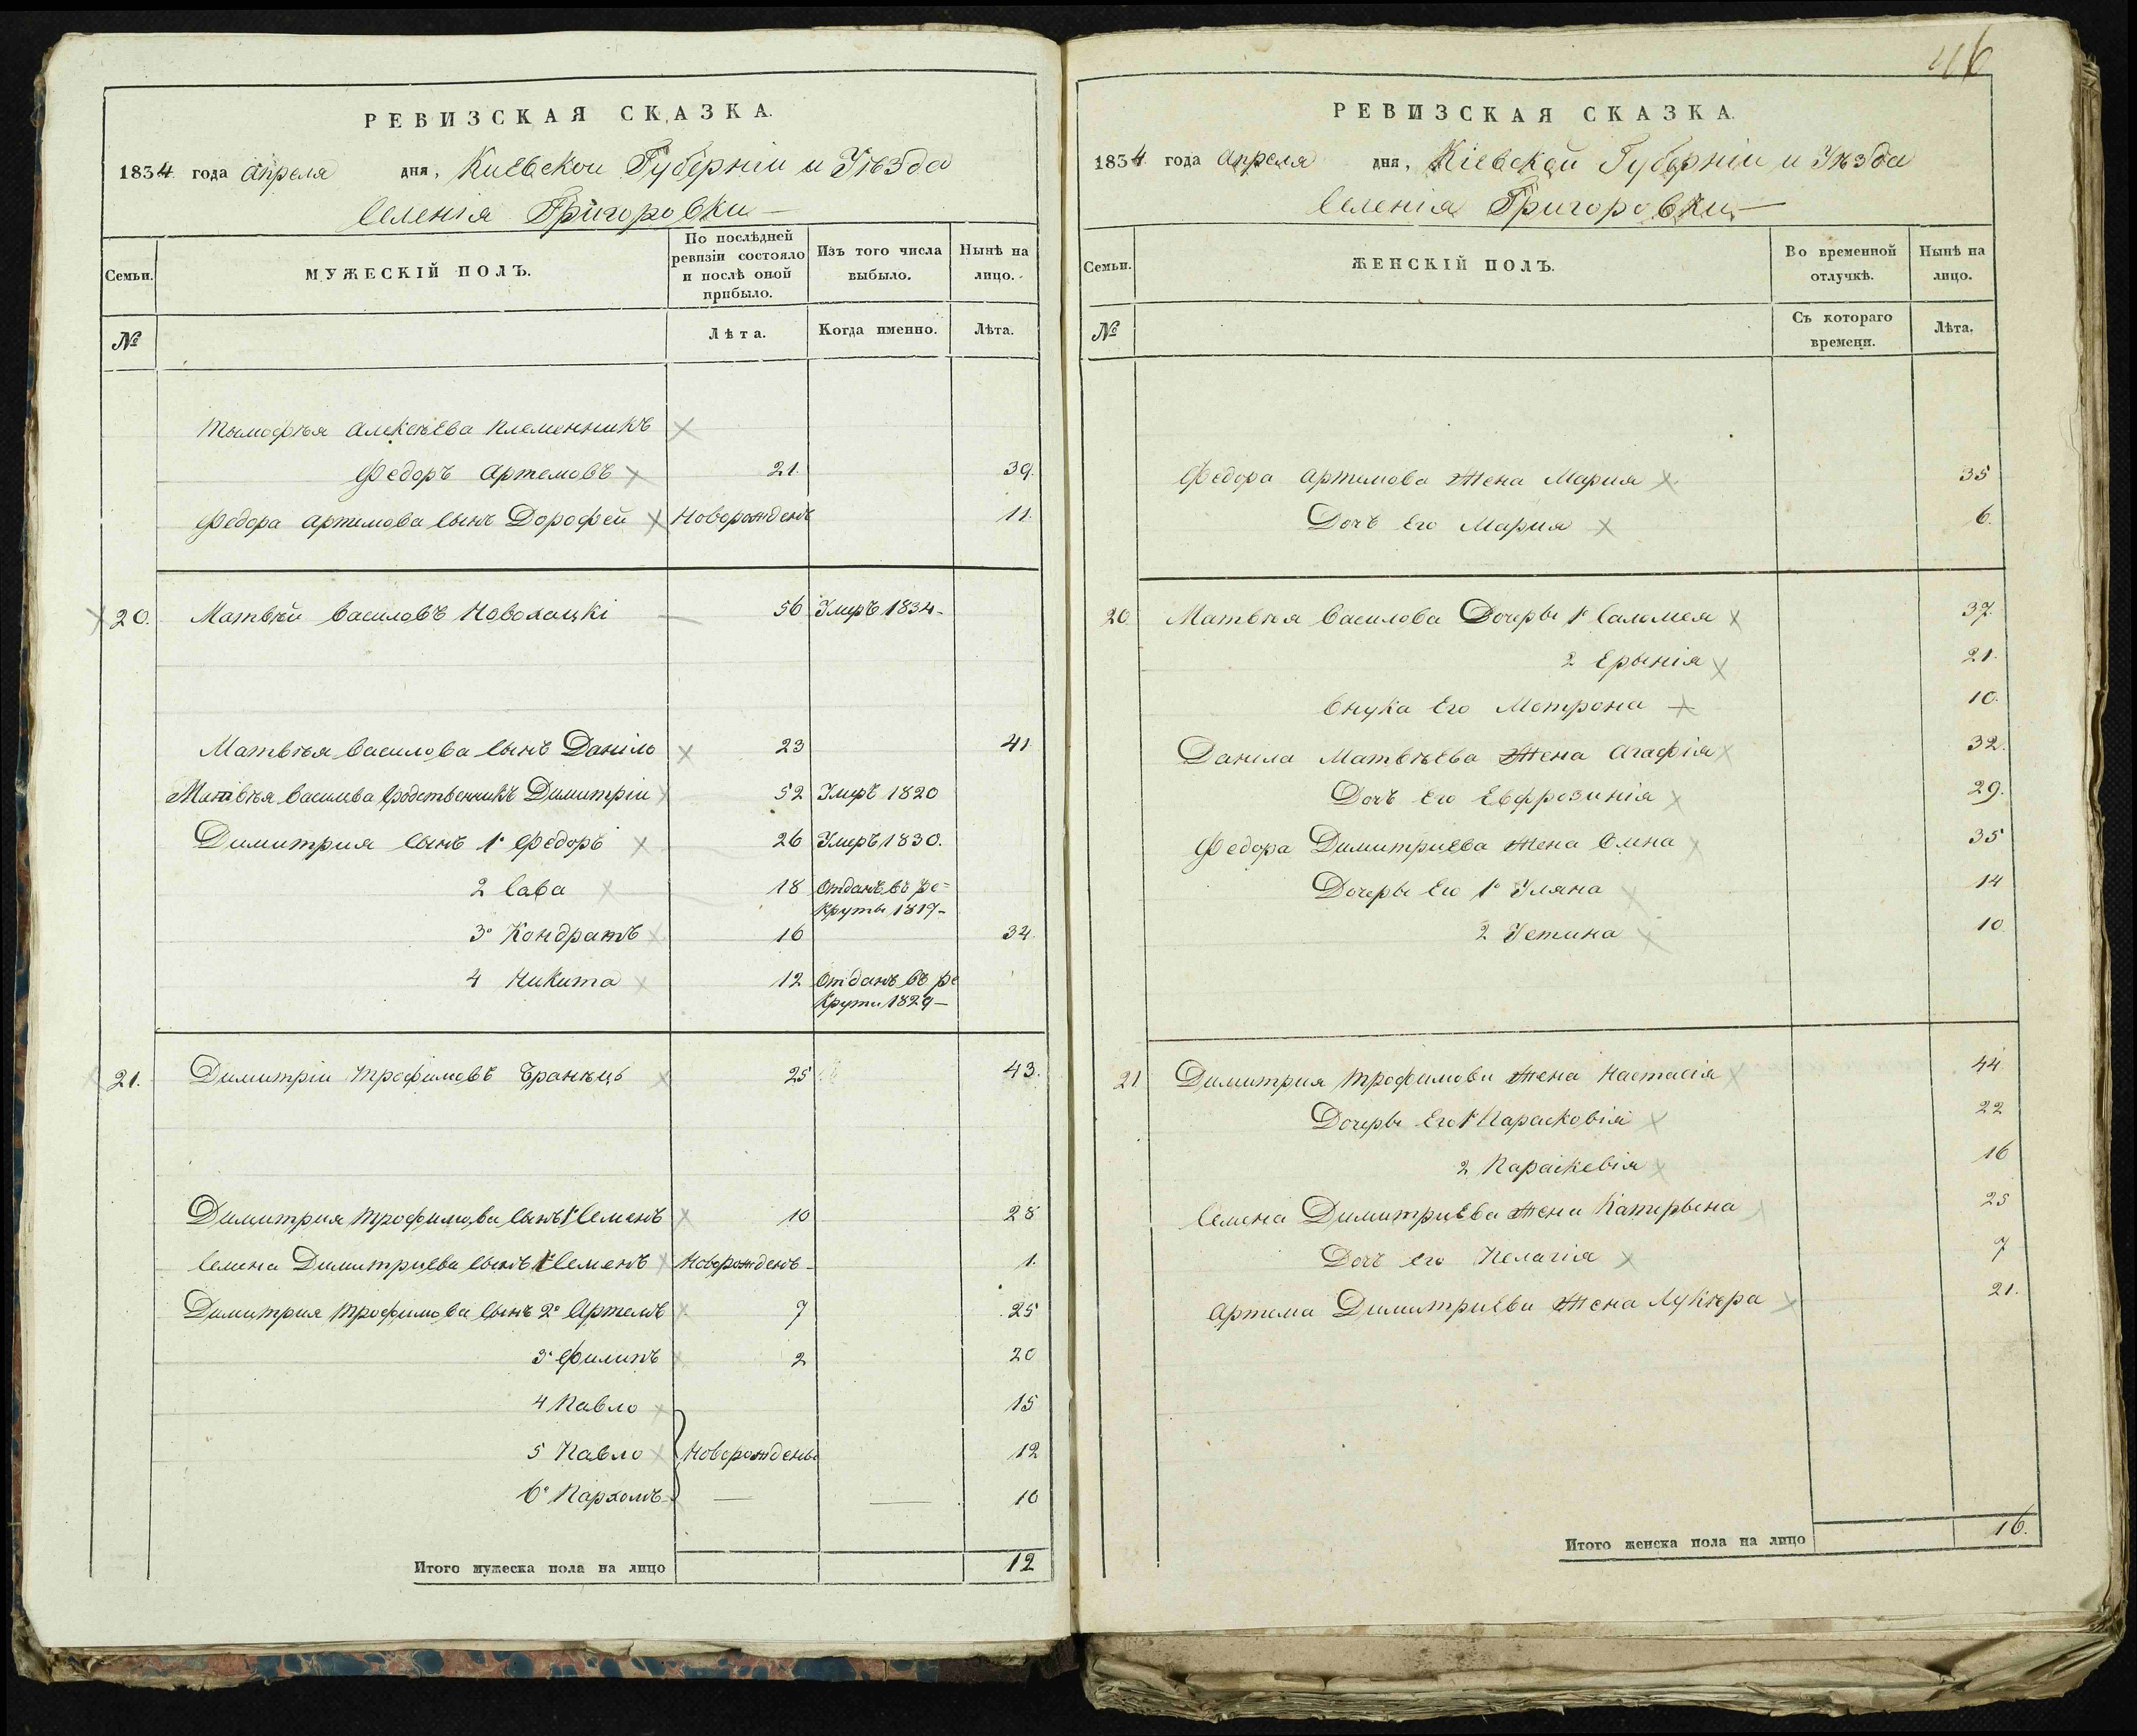 РЕВИЗСКАЯ СКАЗКА.
1834 года Апреля дня, Киевскои Губерніи и Уѣзда
Селенія Григоровки
Семьи.
МУЖЕСКІЙ ПОЛЪ.
По послѣдней ревизіи состояло и послѣ оной прибыло.
Изъ того числа выбыло.
Нынѣ на лицо.
№
Лѣта.
Когда именно.
Лѣта.
Тымофѣя Алексѣева племенникъ
Федоръ Артемовъ 21. 39.
Федора Артемова сынъ Дорофей Новорожденъ 11.
20. Матвѣй Василовъ Новохацкі 56 Умеръ 1834
Матвѣя Василова сынъ Даніло 23 41
Матвѣя Василева родственникъ Димитріи 52 Умеръ 1820
Димитрия сынъ 1й Федоръ 26 Умеръ 1830.
2 Сава 18 Отданъ въ ре=
круты 1819
3й Кондратъ 16 34.
4 Никита 12 Отданъ въ ре
круты 1829
21. Димитріи Трофимовъ Бранѣцъ 25 43.
Димитрия Трофимова сынъ 1й Семенъ 10 28
Семена Димитриева сынъ Семенъ Новорожденъ 1.
Димитрия Трофимова сынъ 2й Артемъ 7 25
3й Филипъ 2 20
4 Павло 15
5 Павло Новорождены 12
6й Пархомъ 10
Итого мужеска пола на лицо 12
46
РЕВИЗСКАЯ СКАЗКА.
1834 года Апреля дня, Кіевской Губерніи и Уѣзда
Селенія Григоровки
Семьи.
ЖЕНСКІЙ ПОЛЪ.
Во временной отлучкѣ.
Нынѣ на лицо.
№
Съ котораго времени.
Лѣта.
Федора Артемова Жена Мария 35
Дочъ Его Мария 6.
20. Матвѣя Василова Дочеры 1я Саломея 37.
2 Ерынія 21.
Внука Его Мотрона 10.
Данила Матвѣева Жена Агафія 32.
Дочъ Его Евфрозинія 29.
Федора Димитриева Жена Олина 35
Дочеры Его 1я Уляна 14
2 Устина 10
21 Димитрия Трофимова Жена Настасія 44
Дочеры Его 1я Парасковія 22
2 Параскевія 16
Семена Димитриева Жена Катерына 25
Дочъ его Пелагія 7
Артема Димитриева Жена Лукѣра 21.
Итого женска пола на лицо 16.